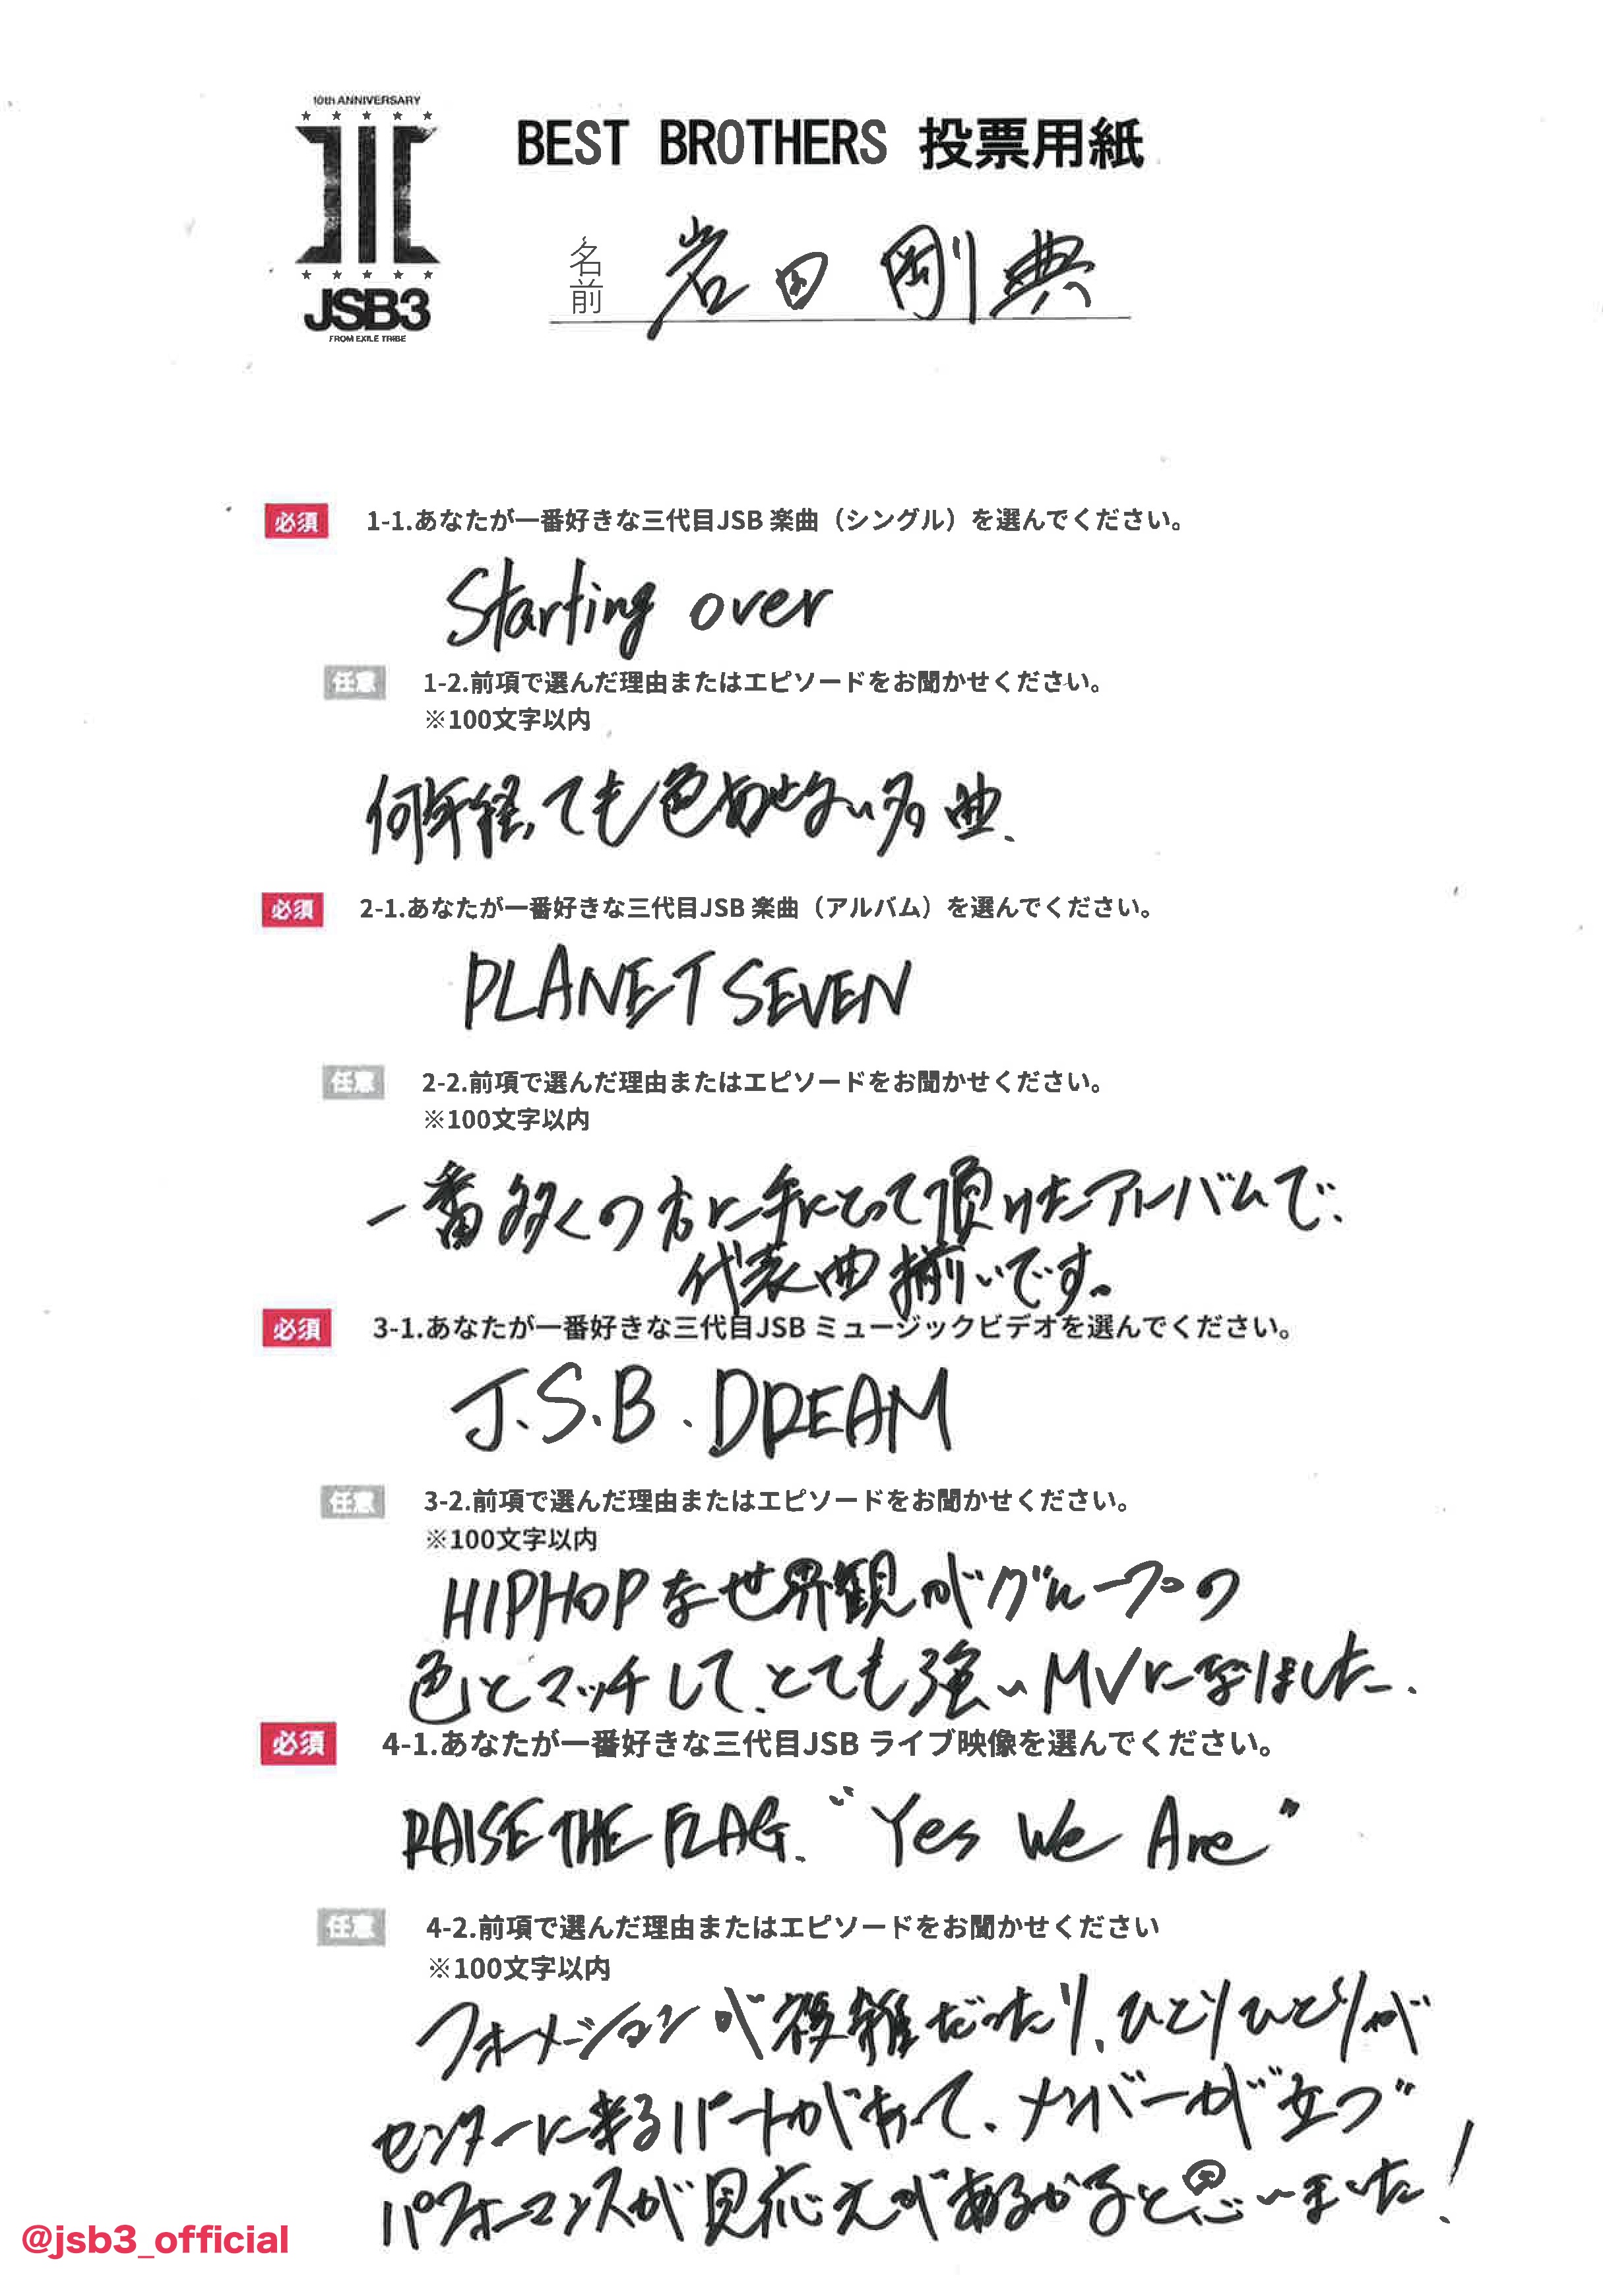 10th ANNIVERSARY
JSB3
FROM EXILE TRIBE
BEST BROTHERS 投票用紙
名前 岩田剛典
必須 1-1.あなたが一番好きな三代目JSB 楽曲（シングル）を選んでください。
Starting over
任意 1-2.前項で選んだ理由またはエピソードをお聞かせください。
※100文字以内
何年経っても色あせない名曲、
必須 2-1.あなたが一番好きな三代目JSB 楽曲（アルバム）を選んでください。
PLANET SEVEN
任意 2-2.前項で選んだ理由またはエピソードをお聞かせください。
※100文字以内
一番多くの方に手にとって頂けたアルバムで、
代表曲揃いです。
必須 3-1.あなたが一番好きな三代目JSB ミュージックビデオを選んでください。
J.S.B. DREAM
任意 3-2.前項で選んだ理由またはエピソードをお聞かせください。
※100文字以内
HIPHOPな世界観がグループの
色とマッチして、とても強いMVになりました.
必須 4-1.あなたが一番好きな三代目JSB ライブ映像を選んでください。
RAISE THE FLAG. “Yes We Are”
任意 4-2.前項で選んだ理由またはエピソードをお聞かせください
※100文字以内
フォーメーションが複雑だったり、ひとりひとりが
センターに来るパートがあって、メンバーが“立つ”
パフォーマンスが見応えがあるかなと思いました!
@jsb3_official